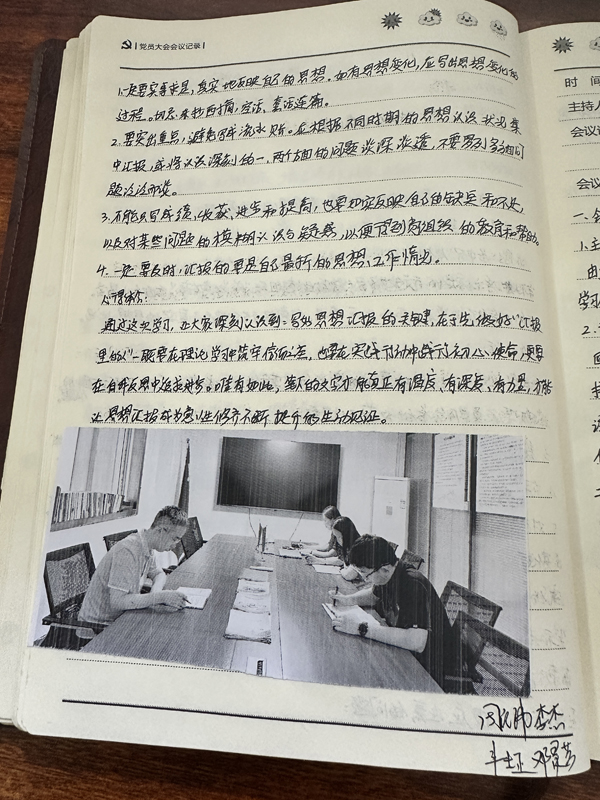 党员大会会议记录
1.一定要实事求是，真实地反映自己的思想。如有思想变化，应写出思想变化的
过程。切忌东抄西摘，空话、套话连篇。
2.要突出重点，避免写成流水账。应根据不同时期的思想认识状况集
中汇报，或将认识深刻的一、两个方面的问题谈深谈透，不要罗列多方面问
题泛泛而谈。
3.不能只写成绩、收获、进步和提高，也要如实反映自己的缺点和不足，
以及对某些问题的模糊认识与疑惑，以便得到党组织的教育和帮助。
4.一定要及时，汇报的要是自己最新的思想、工作情况。
通过这次学习，让大家深刻认识到：写出思想汇报的关键，在于先做好“汇报
里的人”一既要在理论学习中筑牢信仰之基，也要在实践行动中践行初心使命，更要
在自我反思中完成进步。唯有如此，笔下的文字才能真正有温度、有深度、有力量，才能
让思想汇报成为党性修养不断提升的生动见证。
李杰
时间
主持人
会议
会议
一、
1.
由
学习
2.
二